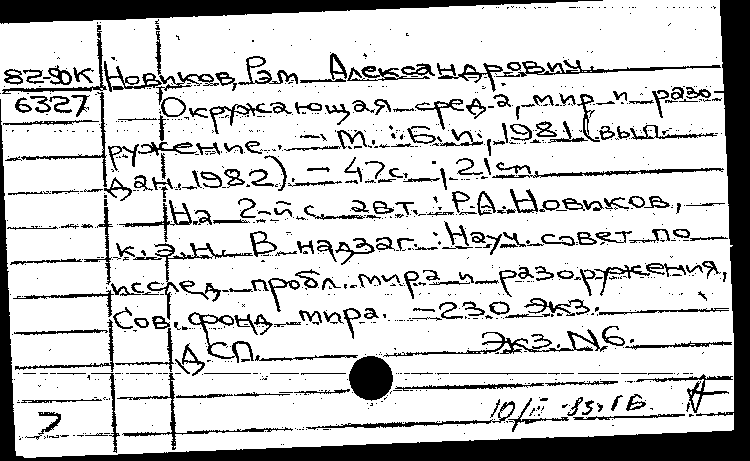 82-90К Новиков, Рэм Александрович.
6327 Окружающая среда, мир и разо-
ружение. – М. : Б. и., 1981 (вып.
дан. 1982). – 47с. ; 21см.
На 2-й с. авт. : Р.А. Новиков,
к.э.н. В надзаг. : Науч. совет по
исслед. пробл. мира и разоружения,
Сов. фонд мира. – 230 экз.
ДСП. Экз. N6.
10/III -83г ГБ.